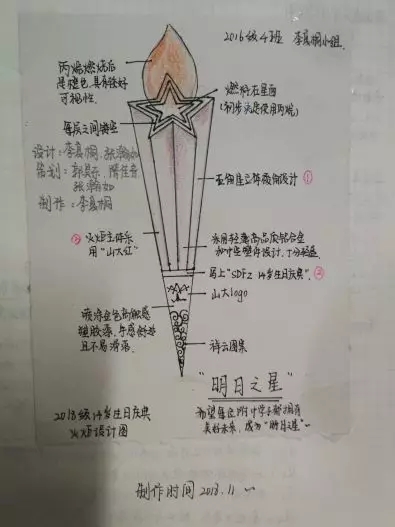 2016级4班 李夏桐小组
丙烷燃烧后
是橙色,具有较好
可视性。
燃料在里面
(初步决定使用丙烷)
每层之间镂空
设计:李夏桐、张瀚如
策划:
张瀚如
制作:李夏桐
五角星立体镂空设计 ①
③ 火炬主体采
用“山大红”
采用轻薄高品质铝合金
和中空塑件设计,十分轻盈
写上“SDFZ 14岁生日庆典” ②
山大logo
喷涂金色高触感
塑胶漆,手感舒适
且不易滑落。
祥云图案
“明日之星”
2016级14岁生日庆典
火炬设计图
希望每位附中学子都拥有
美好未来,成为“明日之星”~
制作时间 2018.11 ~